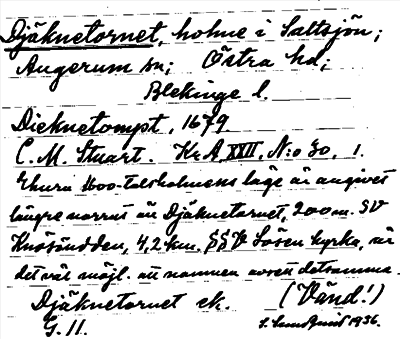 Djäknetornet, holme i Saltsjön;
Augerum sn; Östra hd;
Blekinge l.
Dieknetompt, 1679
C. M. Stuart. Kr A XXII, N:o 30, 1.
Ehuru 1600-talsholmens läge är angivet
längre norrut än Djäknetornet, 200 m. SV
Knösudden, 4,2 km. SSV Lösen kyrka, är
det väl möjl. att namnen avsett detsamma.
Djäknetornet ek. (Vänd!)
G. 11. S. Lundquist 1936.